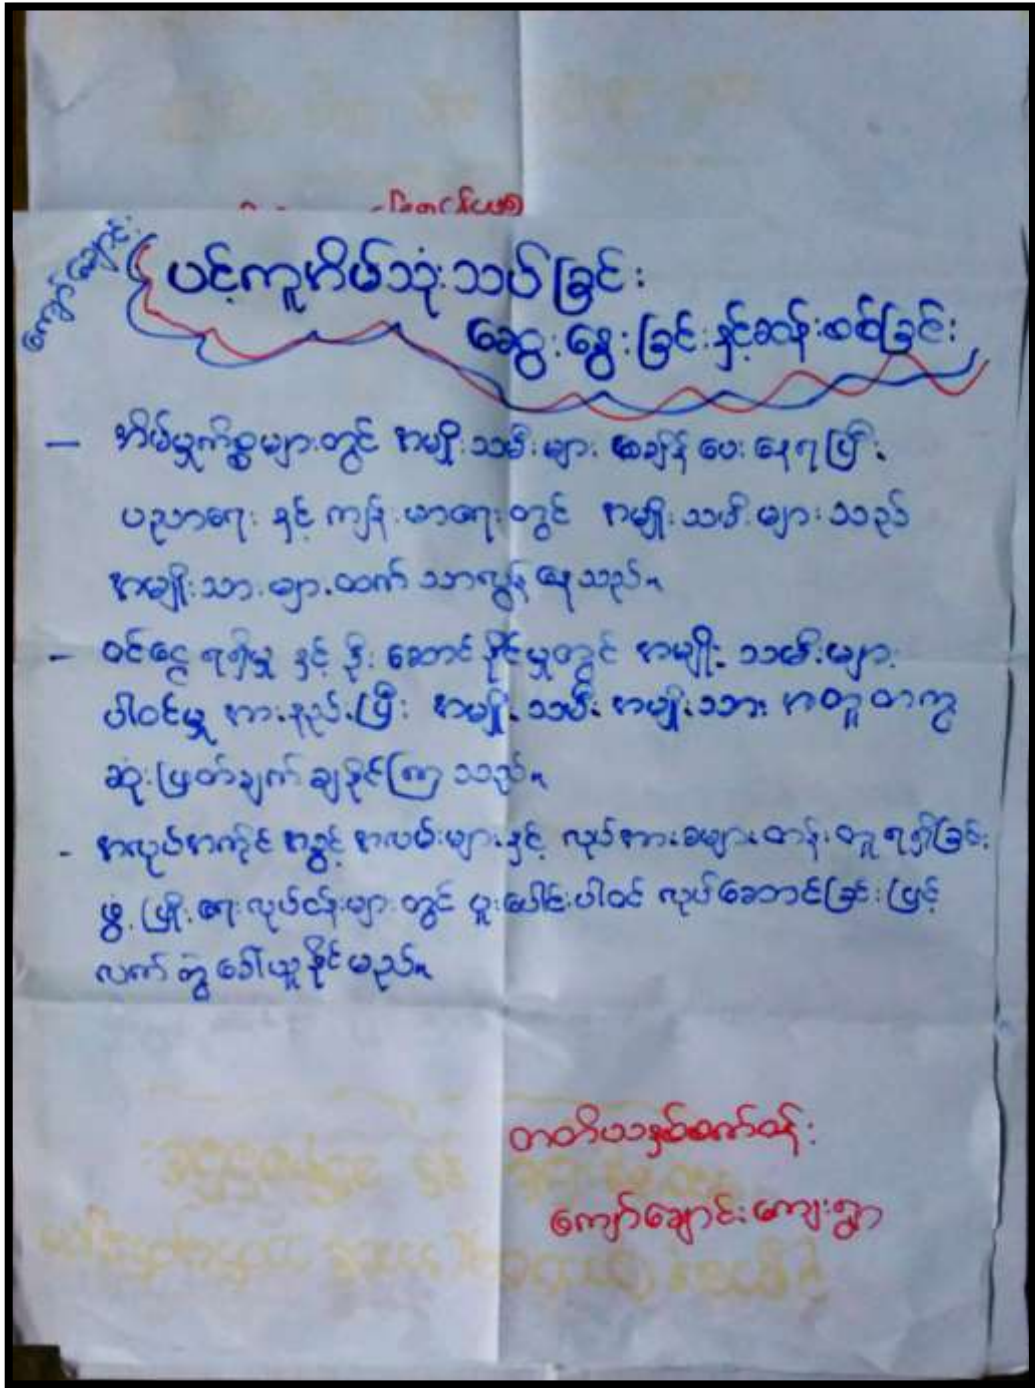 ကျော်ချောင်း
ပင့်ကူအိမ်သုံးသပ်ခြင်း
ဆွေးနွေးခြင်းနှင့်ဆန်းစစ်ခြင်း
– အိမ်မှုကိစ္စများတွင် အမျိုးသမီးများ အချိန်ပေးနေရပြီး
ပညာရေး နှင့် ကျန်းမာရေးတွင် အမျိုးသမီးများသည်
အမျိုးသားများထက် သာလွန်နေသည်။
– ဝင်ငွေရရှိမှု နှင့် ဦးဆောင်နိုင်မှုတွင် အမျိုးသမီးများ
ပါဝင်မှု အားနည်းပြီး အမျိုးသမီး အမျိုးသား အတူတကွ
ဆုံးဖြတ်ချက် ချနိုင်ကြသည်။
- အလုပ်အကိုင် အခွင့်အလမ်းများနှင့် လုပ်အားခများတန်းတူရရှိခြင်း
ဖွံ့ဖြိုးရေးလုပ်ငန်းများတွင် ပူးပေါင်းပါဝင် လုပ်ဆောင်ခြင်းဖြင့်
လက်တွဲခေါ်ယူနိုင်မည်။
တတိယနှစ်စက်ဝန်း
ကျော်ချောင်းကျေးရွာ